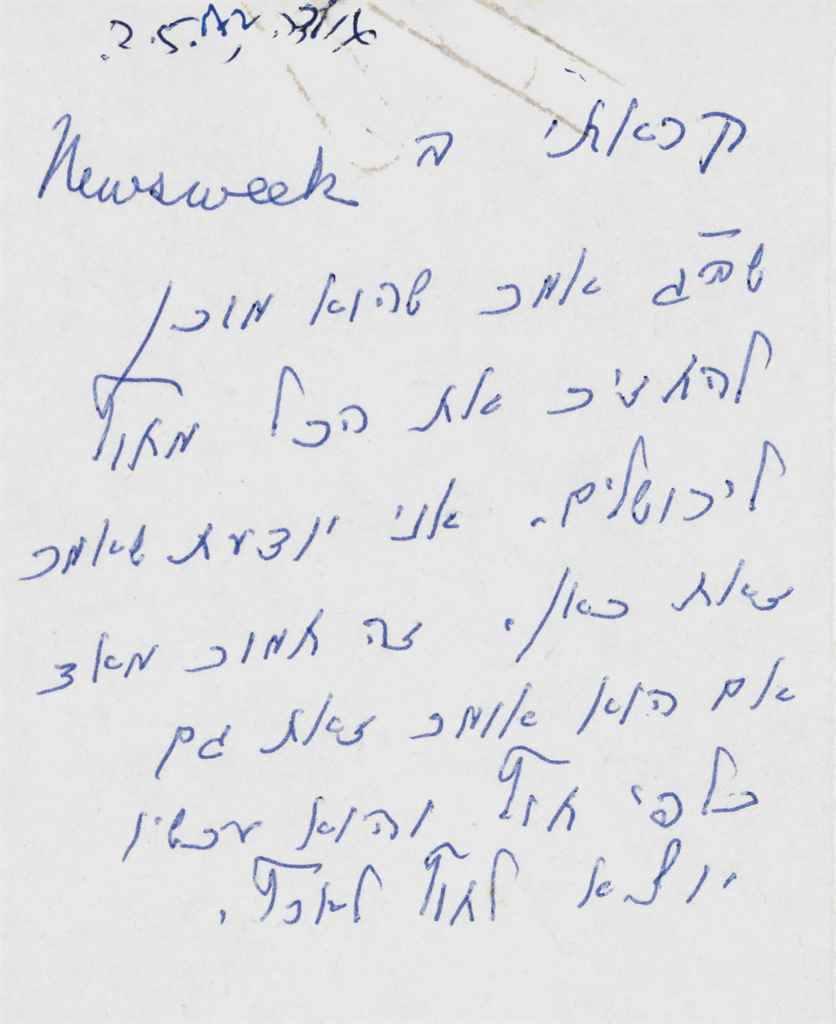 גולדה
קראתי ב Newsweek
שבג אמר שהוא מוכן
להחזיר את הכל מחוץ
לירושלים. אני יודעת שאמר
זאת כאן. זה חמור מאד
אם הוא אומר זאת גם
כלפי חוץ והוא עכשיו
יוצא לחוץ לארץ.